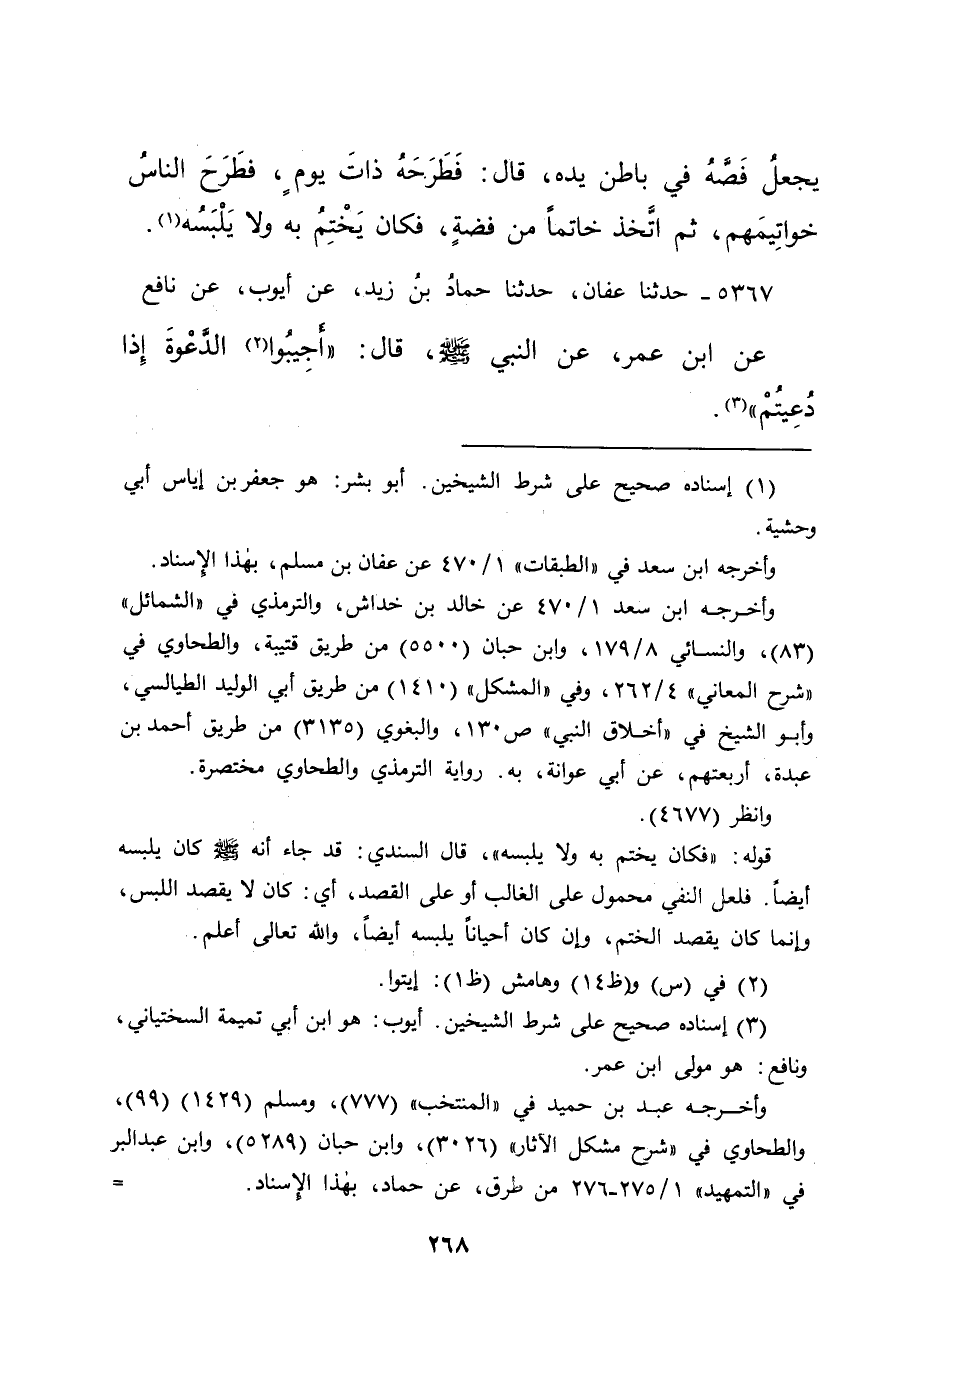 يجعلُ فَصَّهُ في باطن يده، قال: فَطَرَحَهُ ذاتَ يومٍ، فطَرَحَ الناسُ
خواتِيمَهم، ثم اتَّخذ خاتماً من فضةٍ، فكان يَخْتِمُ به ولا يَلْبَسُه(١).
٥٣٦٧ـ حدثنا عفان، حدثنا حمادُ بنُ زيد، عن أيوب، عن نافع
عن ابن عمر، عن النبي ﷺ، قال: «أَجِيبُوا(٢) الدَّعْوةَ إِذا
دُعِيتُمْ»(٣).
(١) إسناده صحيح على شرط الشيخين. أبو بشر: هو جعفر بن إياس أبي
وحشية.
وأخرجه ابن سعد في «الطبقات» ٤٧٠/١ عن عفان بن مسلم، بهٰذا الإسناد.
وأخرجه ابن سعد ٤٧٠/١ عن خالد بن خداش، والترمذي في «الشمائل»
(٨٣)، والنسائي ١٧٩/٨، وابن حبان (٥٥٠٠) من طريق قتيبة، والطحاوي في
«شرح المعاني» ٢٦٢/٤، وفي «المشكل» (١٤١٠) من طريق أبي الوليد الطيالسي،
وأبو الشيخ في «أخلاق النبي» ص١٣٠، والبغوي (٣١٣٥) من طريق أحمد بن
عبدة، أربعتهم، عن أبي عوانة، به. رواية الترمذي والطحاوي مختصرة.
وانظر (٤٦٧٧).
قوله: «فكان يختم به ولا يلبسه»، قال السندي: قد جاء أنه ﷺ كان يلبسه
أيضاً. فلعل النفي محمول على الغالب أو على القصد، أي: كان لا يقصد اللبس،
وإنما كان يقصد الختم، وإن كان أحياناً يلبسه أيضاً، والله تعالى أعلم.
(٢) في (س) و(ظ١٤) وهامش (ظ١): إيتوا.
(٣) إسناده صحيح على شرط الشيخين. أيوب: هو ابن أبي تميمة السختياني،
ونافع: هو مولى ابن عمر.
وأخرجه عبد بن حميد في «المنتخب» (٧٧٧)، ومسلم (١٤٢٩) (٩٩)،
والطحاوي في «شرح مشكل الآثار» (٣٠٢٦)، وابن حبان (٥٢٨٩)، وابن عبدالبر
في «التمهيد» ٢٧٥/١-٢٧٦ من طرق، عن حماد، بهٰذا الإسناد. =
٢٦٨